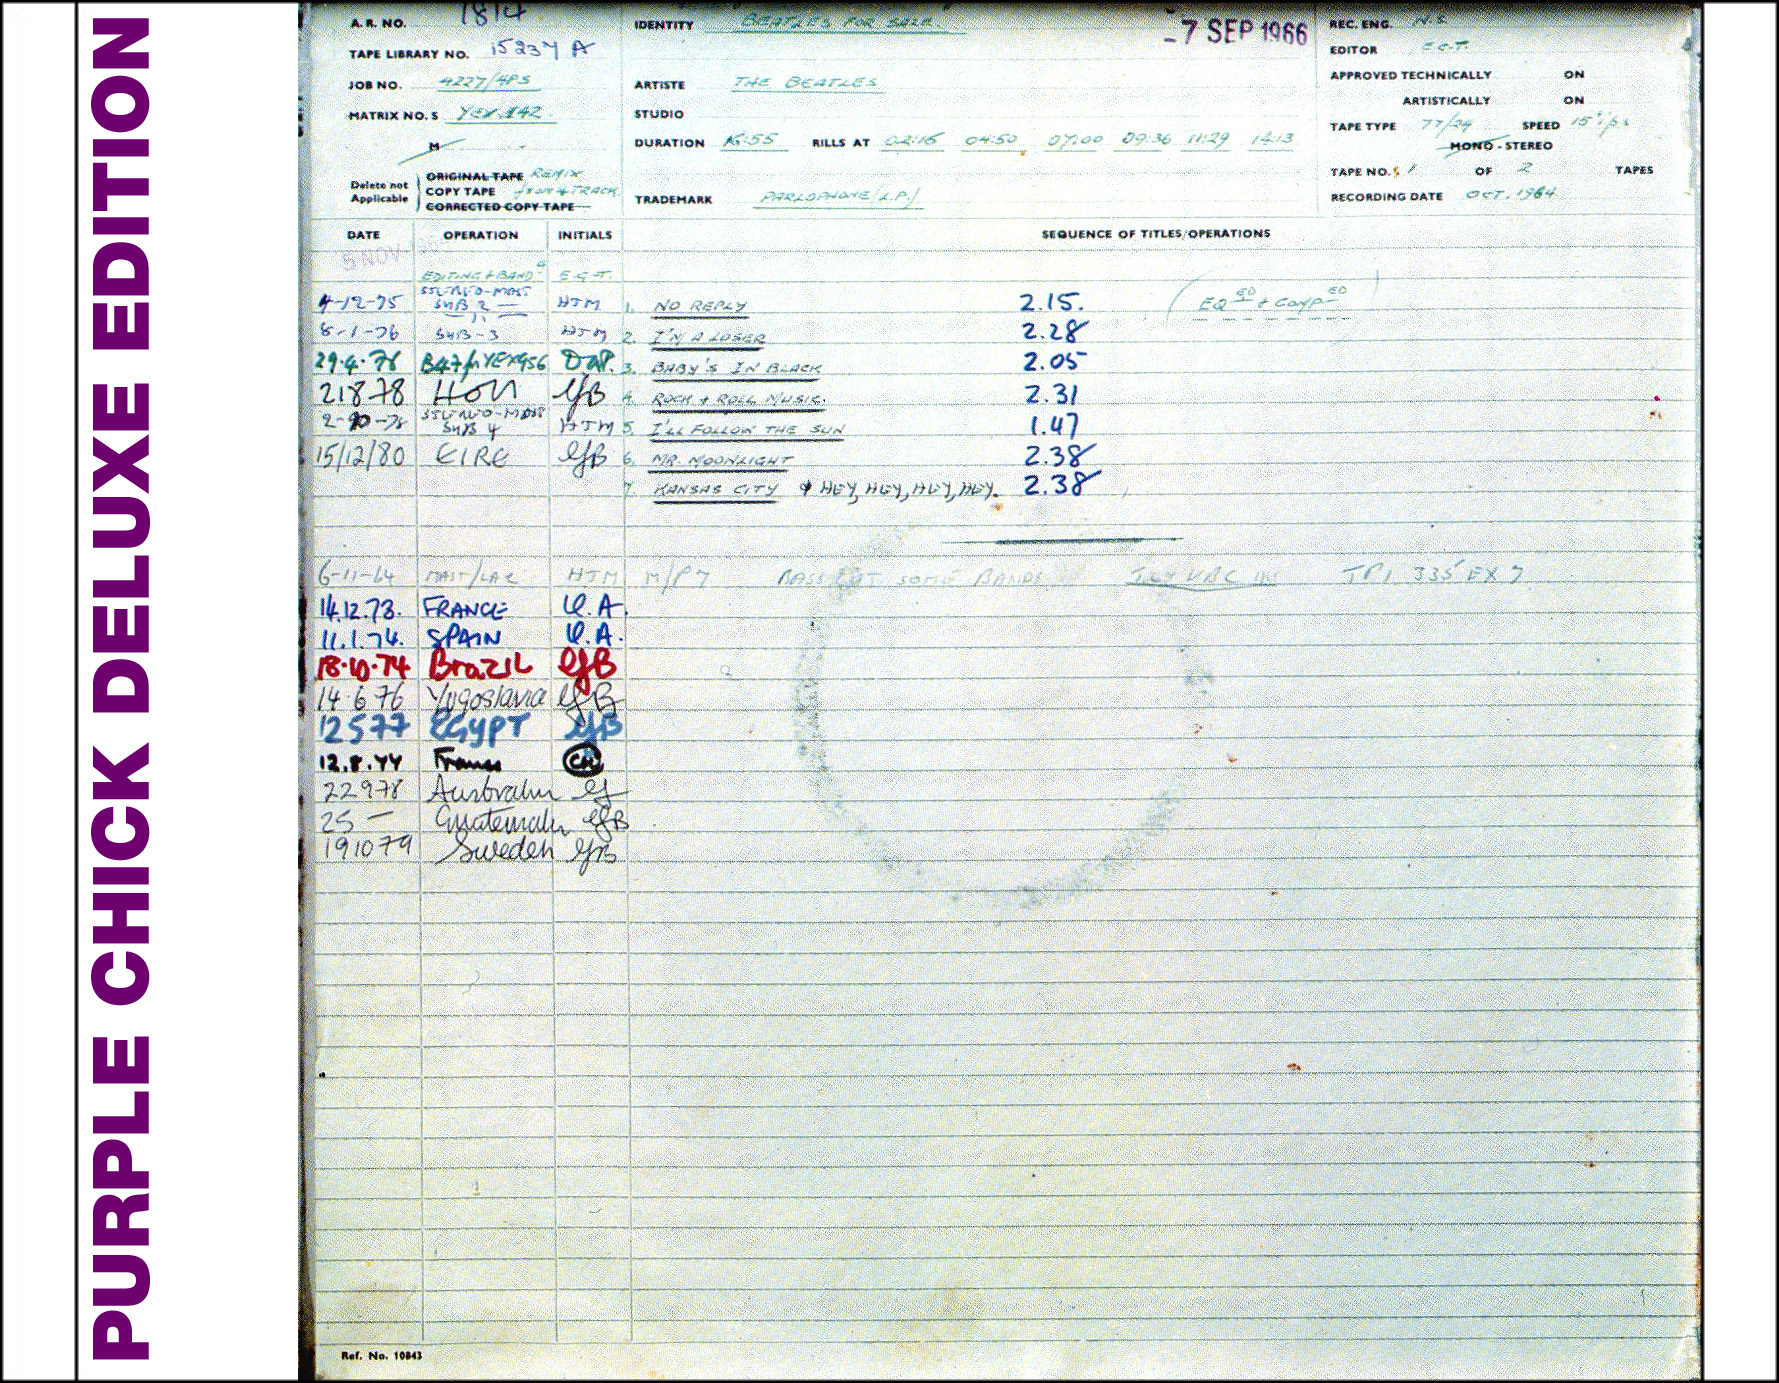 PURPLE CHICK DELUXE EDITION
A.R. NO. 1814
TAPE LIBRARY NO. 15237 A
JOB NO. 4227/4PS
MATRIX NO.S YEX.142.
M
Delete not Applicable
ORIGINAL TAPE REMIX
COPY TAPE from 4 TRACK.
CORRECTED COPY TAPE
IDENTITY "BEATLES FOR SALE"
-7 SEP 1966
ARTISTE THE BEATLES
STUDIO
DURATION 16:55 RILLS AT 02:16 04:50 07:00 09:36 11:29 14:13
TRADEMARK PARLOPHONE (L.P.)
REC. ENG. N.S.
EDITOR E.G.T.
APPROVED TECHNICALLY ON
ARTISTICALLY ON
TAPE TYPE 77/24 SPEED 15"/ps
MONO - STEREO
TAPE NO.S 1 OF 2 TAPES
RECORDING DATE OCT. 1964
DATE OPERATION INITIALS SEQUENCE OF TITLES/OPERATIONS
5 NOV
EDITING + BAND E.G.T.
4-12-75 SUB 2 HTM 1. NO REPLY 2.15. (EQED + COMPED)
8-1-76 SUB-3 HTM 2. I'M A LOSER 2.28
29.4.78 B47/ YEX956 3. BABY'S IN BLACK 2.05
21878 GJB 4. ROCK & ROLL MUSIC. 2.31
SUB 4 HTM 5. I'LL FOLLOW THE SUN 1.47
15/12/80 EIRE GJB 6. MR. MOONLIGHT 2.38
7. KANSAS CITY & HEY, HEY, HEY, HEY. 2.38
6-11-64 MAST/LAC HTM M/P7 BASS CUT SOME BANDS TPI 335 EX 7
14.12.73. FRANCE U.A.
11.1.74. SPAIN U.A.
18.10.74 BrazIL GJB
14.6.76 Yugoslavia GJB
12577 EGYPT GJB
12.8.77 France CH
22978 Australia GJ
25 — Guatemala GJB
191079 Sweden GJB
Ref. No. 10843